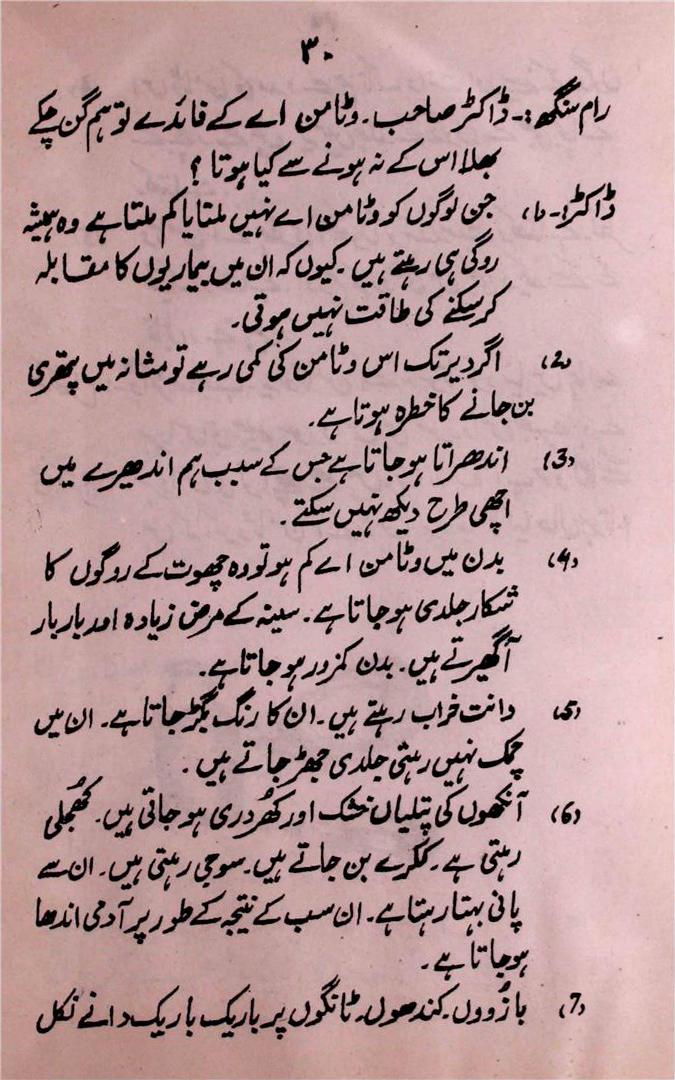 ۳۰
رام سنگھ:۔ ڈاکٹر صاحب۔ وٹامن اے کے فائدے تو ہم گن چکے
بھلا اس کے نہ ہونے سے کیا ہوتا ؟
ڈاکٹر:۔ (1) جن لوگوں کو وٹامن اے نہیں ملتا یا کم ملتا ہے وہ ہمیشہ
روگی ہی رہتے ہیں۔ کیوں کہ ان میں بیماریوں کا مقابلہ
کر سکنے کی طاقت نہیں ہوتی۔
(2) اگر دیر تک اس وٹامن کی کمی رہے تو مثانہ میں پتھری
بن جانے کا خطرہ ہوتا ہے۔
(3) اندھراتا ہو جاتا ہے جس کے سبب ہم اندھیرے میں
اچھی طرح دیکھ نہیں سکتے۔
(4) بدن میں وٹامن اے کم ہو تو وہ چھوت کے روگوں کا
شکار جلدی ہو جاتا ہے۔ سینہ کے مرض زیادہ اور بار بار
آگھیرتے ہیں۔ بدن کمزور ہو جاتا ہے۔
(5) دانت خراب رہتے ہیں۔ ان کا رنگ بگڑ جاتا ہے۔ ان میں
چمک نہیں رہتی جلدی جھڑ جاتے ہیں۔
(6) آنکھوں کی پتلیاں خشک اور کھُردری ہو جاتی ہیں۔ کھُجلی
رہتی ہے۔ ککرے بن جاتے ہیں۔ سوجی رہتی ہیں۔ ان سے
پانی بہتا رہتا ہے۔ ان سب کے نتیجہ کے طور پر آدمی اندھا
ہو جاتا ہے۔
(7) بازوؤں۔ کندھوں۔ ٹانگوں پر باریک باریک دانے نکل